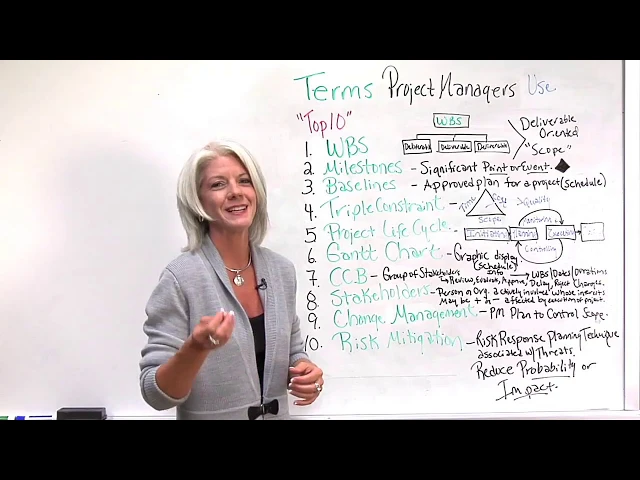 Terms Project Managers Use
"Top 10"
1. WBS
WBS
Deliverable Deliverable Deliverable
Deliverable
Oriented
"Scope"
2. Milestones - Significant Point or Event.
3. Baselines - Approved plan for a project (schedule)
4. Triple Constraint
Time
Scope
Quality
5. Project Life Cycle
Initiating Planning Executing
Monitoring
Controlling
6. Gantt Chart - Graphic display
(schedule)
Info → WBS/Dates/Durations
7. CCB - Group of Stakeholders
Review, Evaluate, Approve, Delay, Reject Changes.
8. Stakeholders - Person or Org. actively involved whose interests
may be + or - affected by execution of project.
9. Change Management - PM Plan to Control Scope.
10. Risk Mitigation - Risk Response Planning Technique
associated w/ Threats.
Reduce Probability or
Impact.